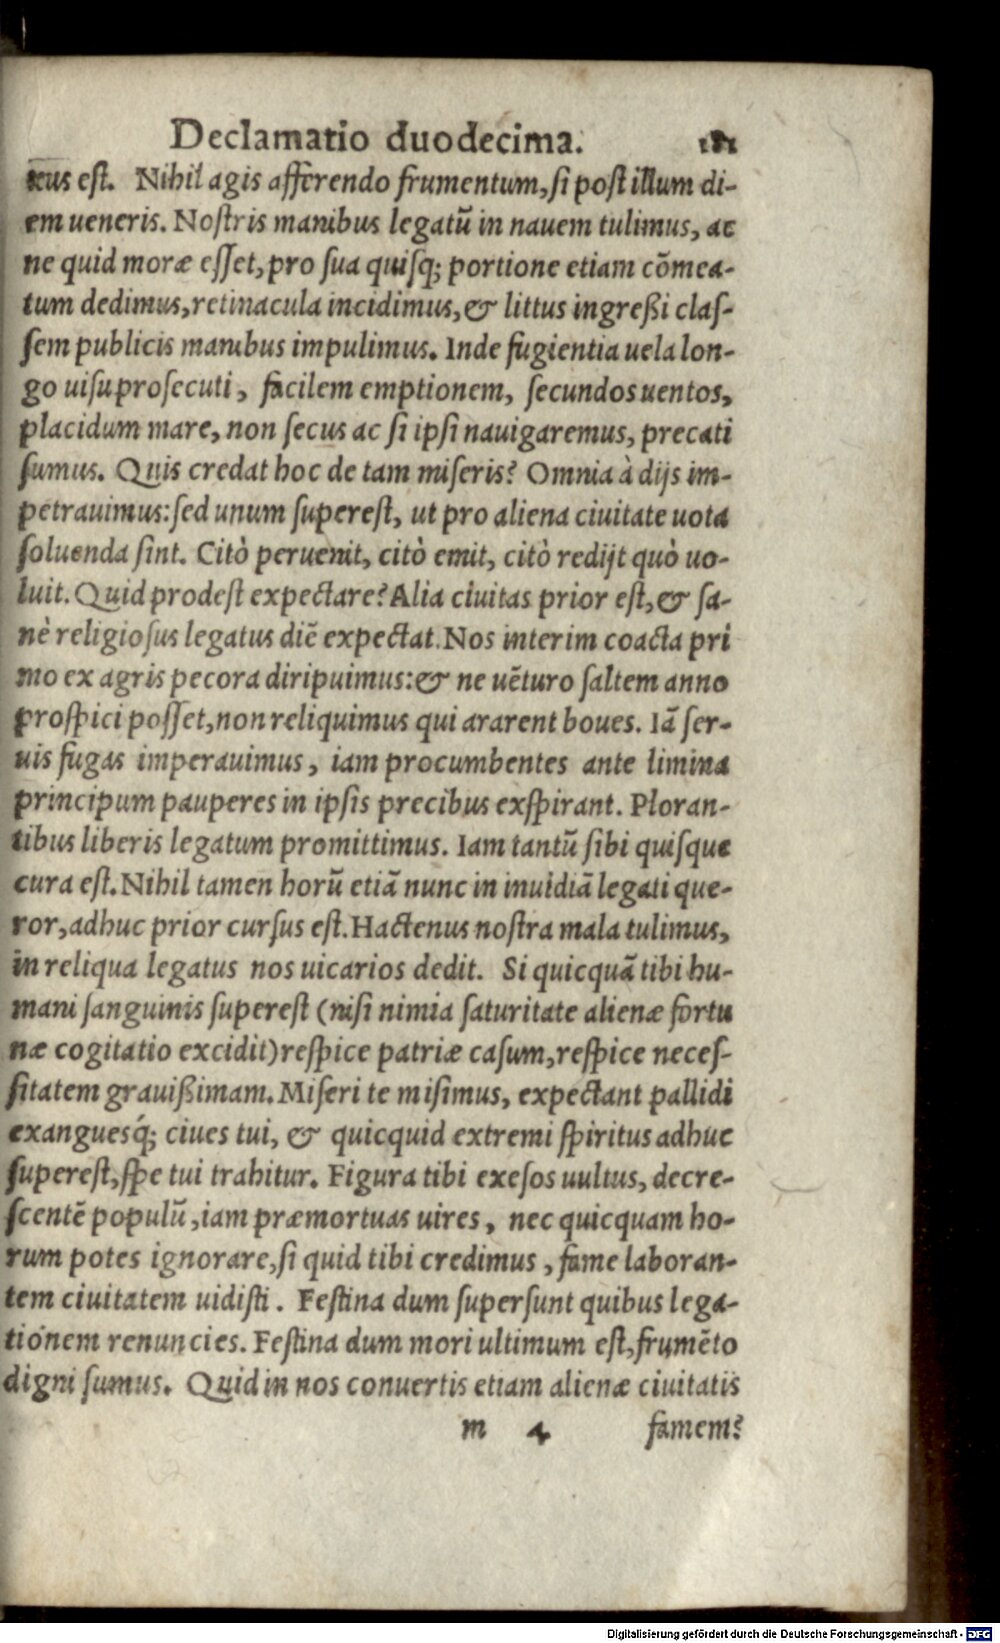 Declamatio duodecima. 181
xus est. Nihil agis afferendo frumentum, si post illum di-
em ueneris. Nostris manibus legatū in nauem tulimus, ac
ne quid moræ esset, pro sua quisq; portione etiam cōmea-
tum dedimus, retinacula incidimus, & littus ingreßi clas-
sem publicis manibus impulimus. Inde fugientia uela lon-
go uisu prosecuti, facilem emptionem, secundos uentos,
placidum mare, non secus ac si ipsi nauigaremus, precati
sumus. Quis credat hoc de tam miseris? Omnia à dijs im-
petrauimus: sed unum superest, ut pro aliena ciuitate uota
soluenda sint. Citò peruenit, citò emit, citò redijt quò uo-
luit. Quid prodest expectare? Alia ciuitas prior est, & sa-
nè religiosus legatus diē expectat. Nos interim coacta pri
mo ex agris pecora diripuimus: & ne uēturo saltem anno
prospici posset, non reliquimus qui ararent boues. Iā ser-
uis fugas imperauimus, iam procumbentes ante limina
principum pauperes in ipsis precibus exspirant. Ploran-
tibus liberis legatum promittimus. Iam tantū sibi quisque
cura est. Nihil tamen horū etiā nunc in inuidiā legati que-
ror, adhuc prior cursus est. Hactenus nostra mala tulimus,
in reliqua legatus nos uicarios dedit. Si quicquā tibi hu-
mani sanguinis superest (nisi nimia saturitate alienæ fortu
næ cogitatio excidit) respice patriæ casum, respice neces-
sitatem grauißimam. Miseri te misimus, expectant pallidi
exanguesq́; ciues tui, & quicquid extremi spiritus adhuc
superest, spe tui trahitur. Figura tibi exesos uultus, decre-
scentē populū, iam præmortuas uires, nec quicquam ho-
rum potes ignorare, si quid tibi credimus, fame laboran-
tem ciuitatem uidisti. Festina dum supersunt quibus lega-
tionem renuncies. Festina dum mori ultimum est, frumēto
digni sumus. Quid in nos conuertis etiam alienæ ciuitatis
m 4 famem?
Digitalisierung gefördert durch die Deutsche Forschungsgemeinschaft - DFG